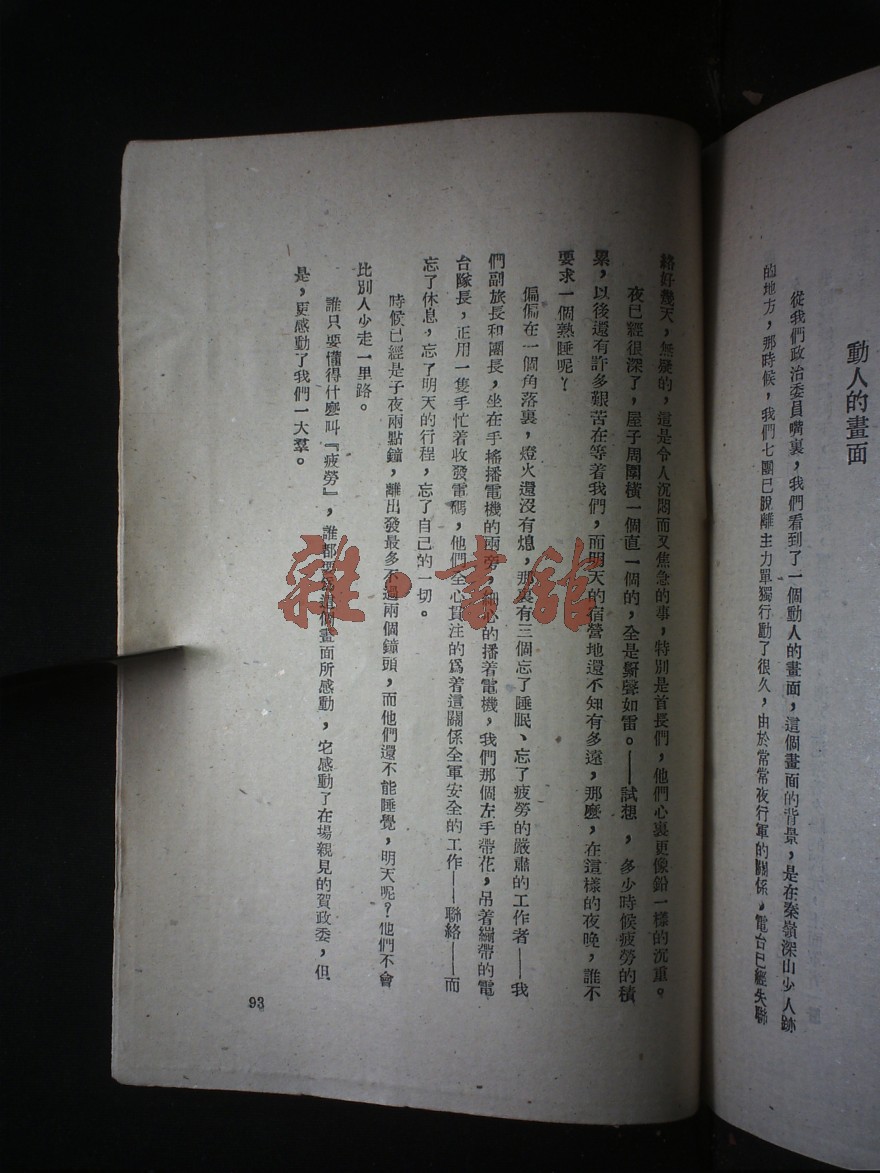 動人的畫面
從我們政治委員嘴裏，我們看到了一個動人的畫面，這個畫面的背景，是在秦嶺深山少人跡
的地方，那時候，我們七團已脫離主力單獨行動了很久，由於常常夜行軍的關係，電台已經失聯
絡好幾天，無疑的，這是令人沉悶而又焦急的事，特別是首長們，他們心裏更像鉛一樣的沉重。
夜已經很深了，屋子周圍橫一個直一個的，全是鼾聲如雷。——試想，多少時候疲勞的積
累，以後還有許多艱苦在等着我們，而明天的宿營地還不知有多遠，那麼，在這樣的夜晚，誰不
要求一個熟睡呢？
偏偏在一個角落裏，燈火還沒有熄，那裏有三個忘了睡眠、忘了疲勞的嚴肅的工作者——我
們副旅長和團長，坐在手搖播電機的兩旁，細心的播着電機，我們那個左手帶花，吊着綳帶的電
台隊長，正用一隻手忙着收發電碼，他們全心貫注的爲着這關係全軍安全的工作——聯絡——而
忘了休息，忘了明天的行程，忘了自己的一切。
時候已經是子夜兩點鐘，離出發最多不過兩個鐘頭，而他們還不能睡覺，明天呢？他們不會
比別人少走一里路。
誰只要懂得什麼叫『疲勞』，誰都要爲這個畫面所感動，它感動了在場親見的賀政委，但
是，更感動了我們一大羣。
93
雜·書館